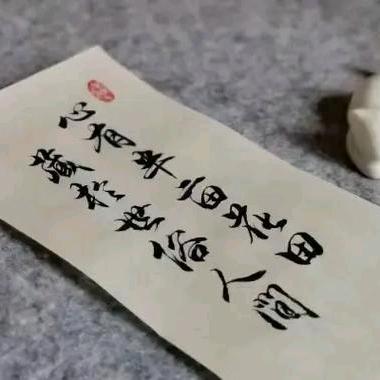 心有半亩花田
藏於世俗人间